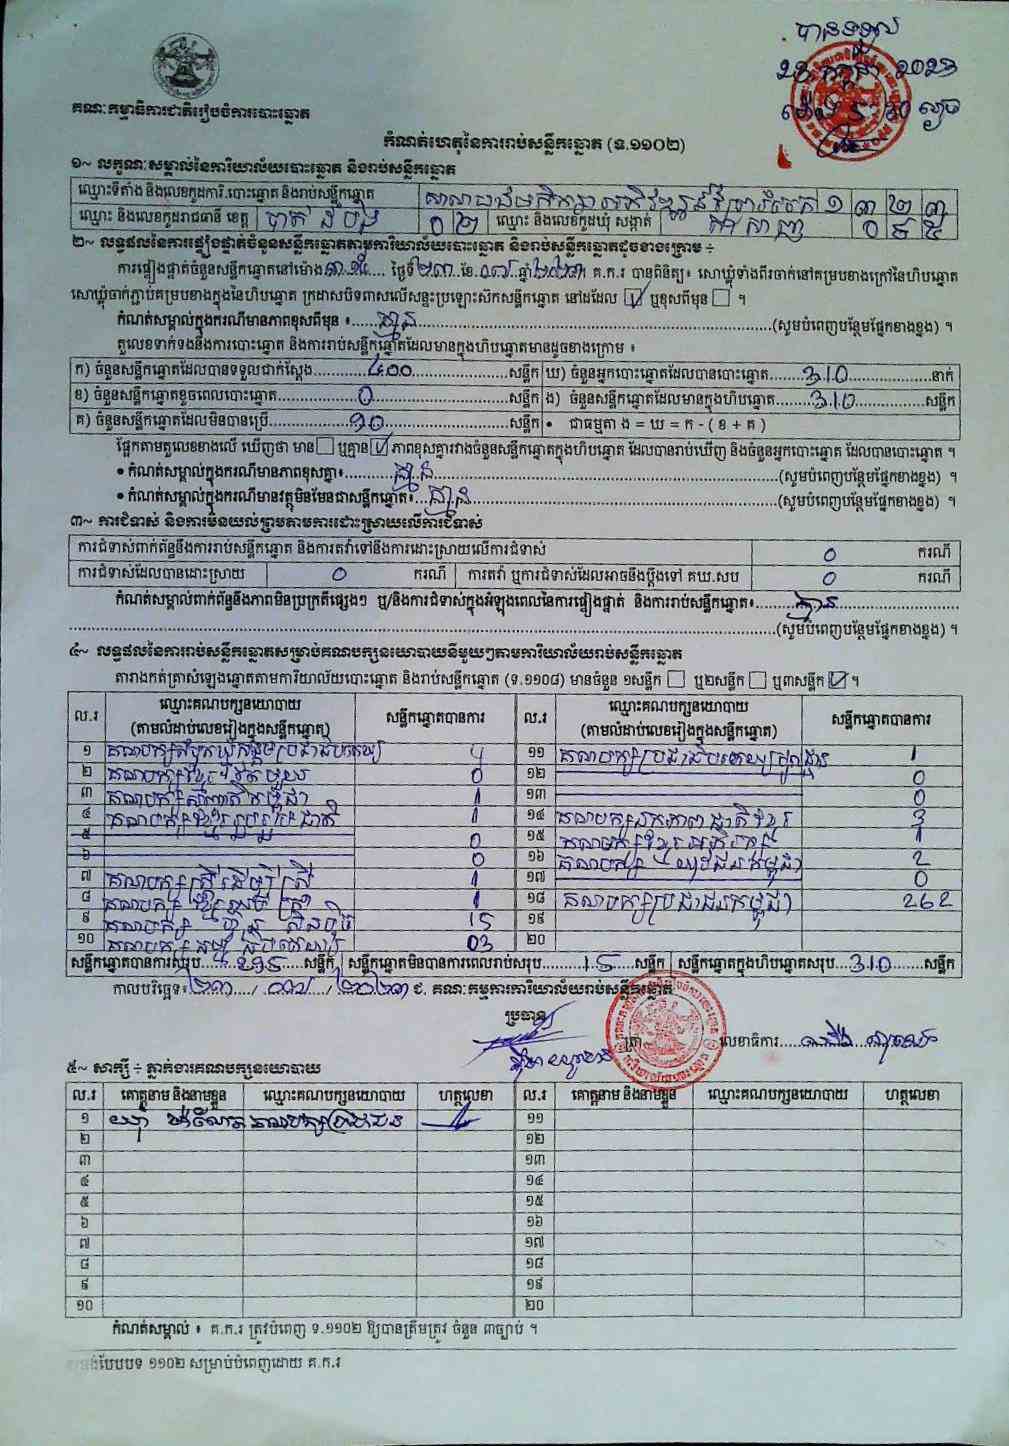 បានទទួល
គណៈកម្មាធិការជាតិរៀបចំការបោះឆ្នោត
កំណត់ហេតុនៃការរាប់សន្លឹកឆ្នោត (ទ.១១០២)
១~ លក្ខណៈសម្គាល់នៃការិយាល័យបោះឆ្នោត និងរាប់សន្លឹកឆ្នោត
ឈ្មោះទីតាំង និងលេខកូដការិ.បោះឆ្នោត និងរាប់សន្លឹកឆ្នោត ១ ៣ ២ ៣
ឈ្មោះ និងលេខកូដរាជធានី ខេត្ត បាត់ដំបង ០ ២ ឈ្មោះ និងលេខកូដឃុំ សង្កាត់ ០ ៩ ៥
២~ លទ្ធផលនៃការផ្ទៀងផ្ទាត់ចំនួនសន្លឹកឆ្នោតតាមការិយាល័យបោះឆ្នោត និងរាប់សន្លឹកឆ្នោតដូចខាងក្រោម ÷
ការផ្ទៀងផ្ទាត់ចំនួនសន្លឹកឆ្នោតនៅម៉ោង ថ្ងៃទី២៣ខែ.០៧.ឆ្នាំ២០២៣។ គ.ក.រ បានពិនិត្យ៖ សោឃ្លុំទាំងពីរចាក់នៅគម្របខាងក្រៅនៃហិបឆ្នោត
សោឃ្លុំចាក់ភ្ជាប់គម្របខាងក្នុងនៃហិបឆ្នោត ក្រដាសបិទពាសលើសន្ទះប្រឡោះស៊កសន្លឹកឆ្នោត នៅដដែល ឬខុសពីមុន ។
កំណត់សម្គាល់ក្នុងករណីមានភាពខុសពីមុន ៖ គ្មាន (សូមបំពេញបន្ថែមផ្នែកខាងខ្នង) ។
តួលេខទាក់ទងនឹងការបោះឆ្នោត និងការរាប់សន្លឹកឆ្នោតដែលមានក្នុងហិបឆ្នោតមានដូចខាងក្រោម ៖
ក) ចំនួនសន្លឹកឆ្នោតដែលបានទទួលជាក់ស្តែង 400 សន្លឹក ឃ) ចំនួនអ្នកបោះឆ្នោតដែលបានបោះឆ្នោត 310 នាក់
ខ) ចំនួនសន្លឹកឆ្នោតខូចពេលបោះឆ្នោត 0 សន្លឹក ង) ចំនួនសន្លឹកឆ្នោតដែលមានក្នុងហិបឆ្នោត 310 សន្លឹក
គ) ចំនួនសន្លឹកឆ្នោតដែលមិនបានប្រើ 90 សន្លឹក • ជាធម្មតា ង = ឃ = ក - ( ខ + គ )
ផ្អែកតាមតួលេខខាងលើ ឃើញថា មាន ឬគ្មាន ភាពខុសគ្នារវាងចំនួនសន្លឹកឆ្នោតក្នុងហិបឆ្នោត ដែលបានរាប់ឃើញ និងចំនួនអ្នកបោះឆ្នោត ដែលបានបោះឆ្នោត ។
• កំណត់សម្គាល់ក្នុងករណីមានភាពខុសគ្នា៖ គ្មាន (សូមបំពេញបន្ថែមផ្នែកខាងខ្នង) ។
• កំណត់សម្គាល់ក្នុងករណីមានវត្ថុមិនមែនជាសន្លឹកឆ្នោត៖ គ្មាន (សូមបំពេញបន្ថែមផ្នែកខាងខ្នង) ។
៣~ ការជំទាស់ និងការមិនយល់ព្រមតាមការដោះស្រាយលើការជំទាស់
ការជំទាស់ពាក់ព័ន្ធនឹងការរាប់សន្លឹកឆ្នោត និងការតវ៉ាទៅនឹងការដោះស្រាយលើការជំទាស់ 0 ករណី
ការជំទាស់ដែលបានដោះស្រាយ 0 ករណី ការតវ៉ា ឬការជំទាស់ដែលអាចនឹងប្តឹងទៅ គឃ.សប 0 ករណី
កំណត់សម្គាល់ពាក់ព័ន្ធនឹងភាពមិនប្រក្រតីផ្សេងៗ ឬ/និងការជំទាស់ក្នុងអំឡុងពេលនៃការផ្ទៀងផ្ទាត់ និងការរាប់សន្លឹកឆ្នោត៖ គ្មាន
(សូមបំពេញបន្ថែមផ្នែកខាងខ្នង) ។
៤~ លទ្ធផលនៃការរាប់សន្លឹកឆ្នោតសម្រាប់គណបក្សនយោបាយនីមួយៗតាមការិយាល័យរាប់សន្លឹកឆ្នោត
តារាងកត់ត្រាសំឡេងឆ្នោតតាមការិយាល័យបោះឆ្នោត និងរាប់សន្លឹកឆ្នោត (ទ.១១០៨) មានចំនួន ១សន្លឹក ឬ២សន្លឹក ឬ៣សន្លឹក ។
ល.រ ឈ្មោះគណបក្សនយោបាយ (តាមលំដាប់លេខរៀងក្នុងសន្លឹកឆ្នោត) សន្លឹកឆ្នោតបានការ ល.រ ឈ្មោះគណបក្សនយោបាយ (តាមលំដាប់លេខរៀងក្នុងសន្លឹកឆ្នោត) សន្លឹកឆ្នោតបានការ
១ គណបក្សសំបុកឃ្មុំសង្គមប្រជាធិបតេយ្យ 4 ១១ គណបក្សប្រជាធិបតេយ្យមូលដ្ឋាន 1
២ គណបក្សខ្មែររួបរួម 0 ១២ 0
៣ គណបក្សសញ្ជាតិកម្ពុជា 1 ១៣ 0
៤ 1 ១៤ គណបក្សឯកភាពជាតិខ្មែរ 3
៥ 0 ១៥ គណបក្សខ្មែរអភិរក្ស 1
៦ 0 ១៦ គណបក្សយុវជនកម្ពុជា 2
៧ គណបក្សស្ត្រីដើម្បីស្ត្រី 1 ១៧ 0
៨ 1 ១៨ គណបក្សប្រជាជនកម្ពុជា 262
៩ គណបក្សហ៊្វុនស៊ិនប៉ិច 15 ១៩
១០ 03 ២០
សន្លឹកឆ្នោតបានការសរុប 295 សន្លឹក សន្លឹកឆ្នោតមិនបានការពេលរាប់សរុប 15 សន្លឹក សន្លឹកឆ្នោតក្នុងហិបឆ្នោតសរុប 310 សន្លឹក
កាលបរិច្ឆេទ៖ ២៣ / ០៧ / ២០២៣ ជ. គណៈកម្មការការិយាល័យរាប់សន្លឹកឆ្នោត
ប្រធាន
ត្រា លេខាធិការ
៥~ សាក្សី ÷ ភ្នាក់ងារគណបក្សនយោបាយ
ល.រ គោត្តនាម និងនាមខ្លួន ឈ្មោះគណបក្សនយោបាយ ហត្ថលេខា ល.រ គោត្តនាម និងនាមខ្លួន ឈ្មោះគណបក្សនយោបាយ ហត្ថលេខា
១ គណបក្សប្រជាជន ១១
២ ១២
៣ ១៣
៤ ១៤
៥ ១៥
៦ ១៦
៧ ១៧
៨ ១៨
៩ ១៩
១០ ២០
កំណត់សម្គាល់ ៖ គ.ក.រ ត្រូវបំពេញ ទ.១១០២ ឱ្យបានត្រឹមត្រូវ ចំនួន ៣ច្បាប់ ។
បែបបទ ១១០២ សម្រាប់បំពេញដោយ គ.ក.រ